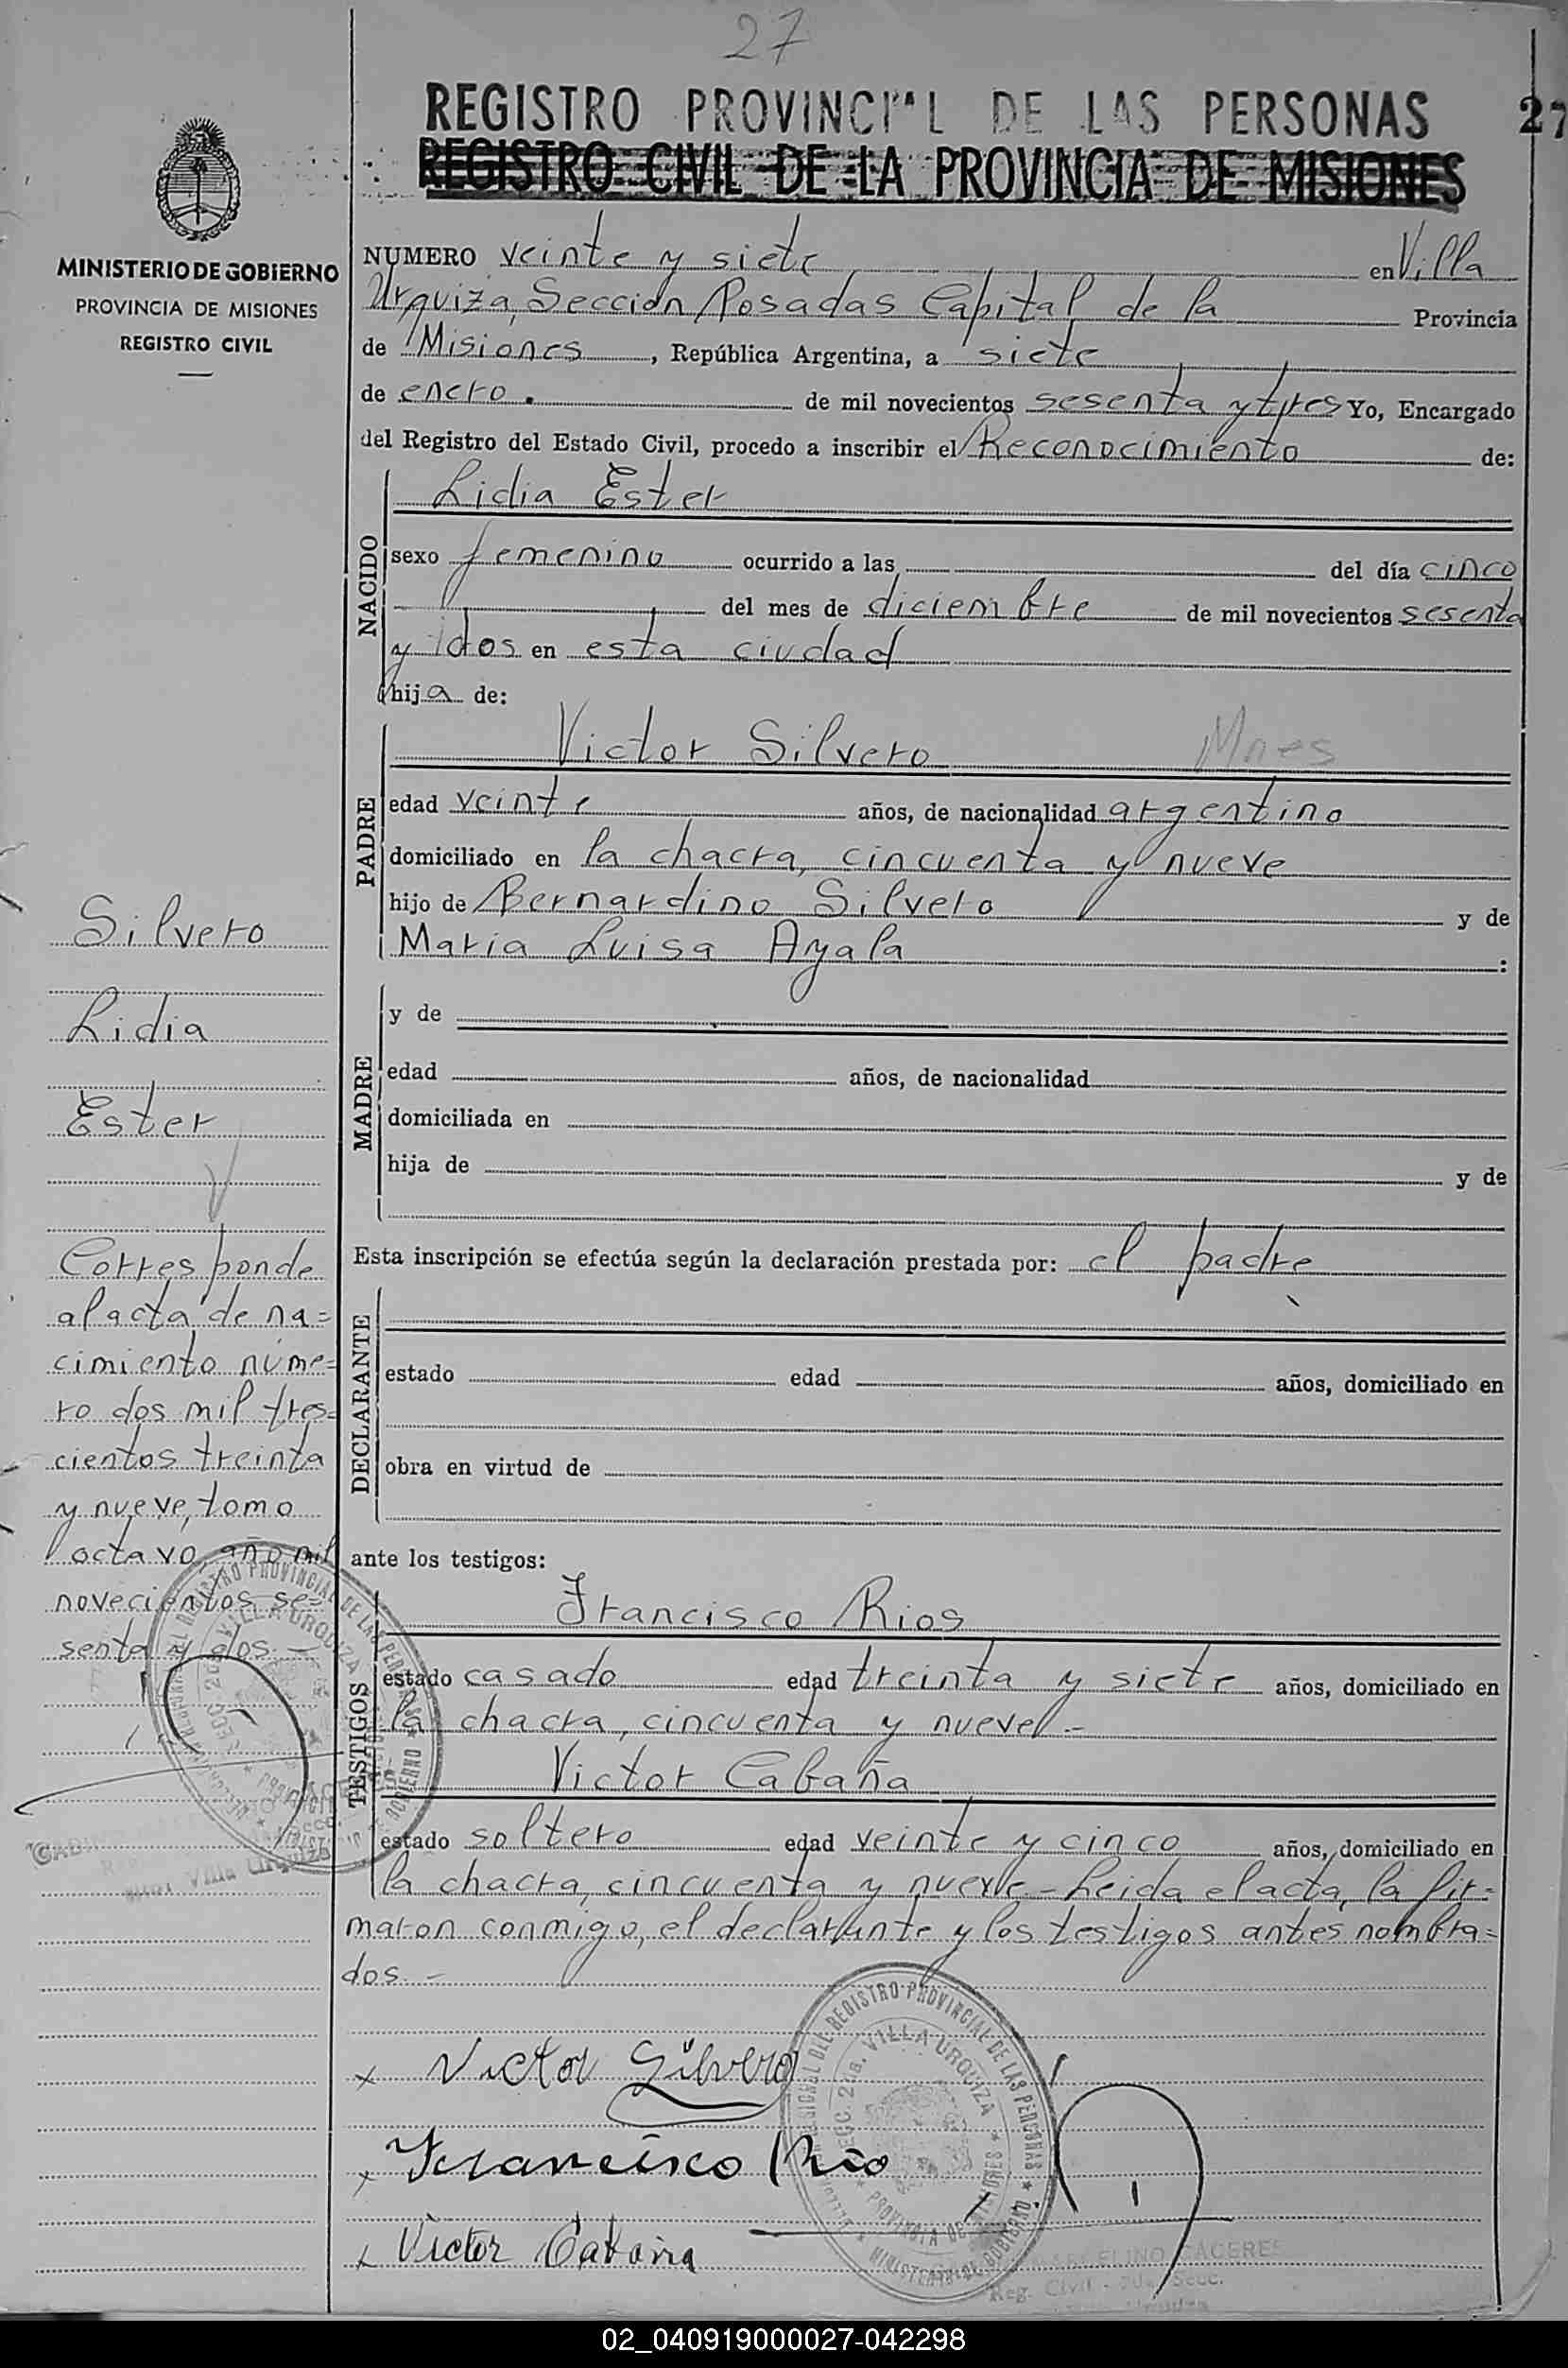 27
REGISTRO PROVINCIAL DE LAS PERSONAS 27
REGISTRO CIVIL DE LA PROVINCIA DE MISIONES
MINISTERIO DE GOBIERNO
PROVINCIA DE MISIONES
REGISTRO CIVIL
NUMERO veinte y siete en Villa
Urquiza, Sección Posadas Capital de la Provincia
de Misiones, República Argentina, a siete
de enero. de mil novecientos sesenta y tres Yo, Encargado
del Registro del Estado Civil, procedo a inscribir el Reconocimiento de:
NACIDO
Lidia Ester
sexo femenino ocurrido a las del día cinco
del mes de diciembre de mil novecientos sesenta
y dos en esta ciudad
hija de:
PADRE
Victor Silvero Mnes
edad veinte años, de nacionalidad argentino
domiciliado en la chacra, cincuenta y nueve
hijo de Bernardino Silvero y de
Maria Luisa Ayala :
MADRE
y de
edad años, de nacionalidad
domiciliada en
hija de y de
Esta inscripción se efectúa según la declaración prestada por: el padre
DECLARANTE
estado edad años, domiciliado en
obra en virtud de
ante los testigos:
TESTIGOS
Francisco Rios
estado casado edad treinta y siete años, domiciliado en
la chacra, cincuenta y nueve.-
Victor Cabaña
estado soltero edad veinte y cinco años, domiciliado en
la chacra, cincuenta y nueve - Leida el acta, la fir=
maron conmigo, el declarante y los testigos antes nombra=
dos.-
Silvero
Lidia
Ester
Corresponde
al acta de na=
cimiento núme=
ro dos mil tres=
cientos treinta
y nueve, tomo
octavo, año mil
novecientos se=
senta y dos.-
x Victor Silvero
x Francisco Rio
x Victor Cabaña
DEL REGISTRO PROVINCIAL DE LAS PERSONAS
SECC. 2da. VILLA URQUIZA
PROVINCIA DE MISIONES
MINISTERIO DE GOBIERNO
MARCELINO CACERES
Reg. Civil - 2da. Secc.
Villa Urquiza
02_040919000027-042298